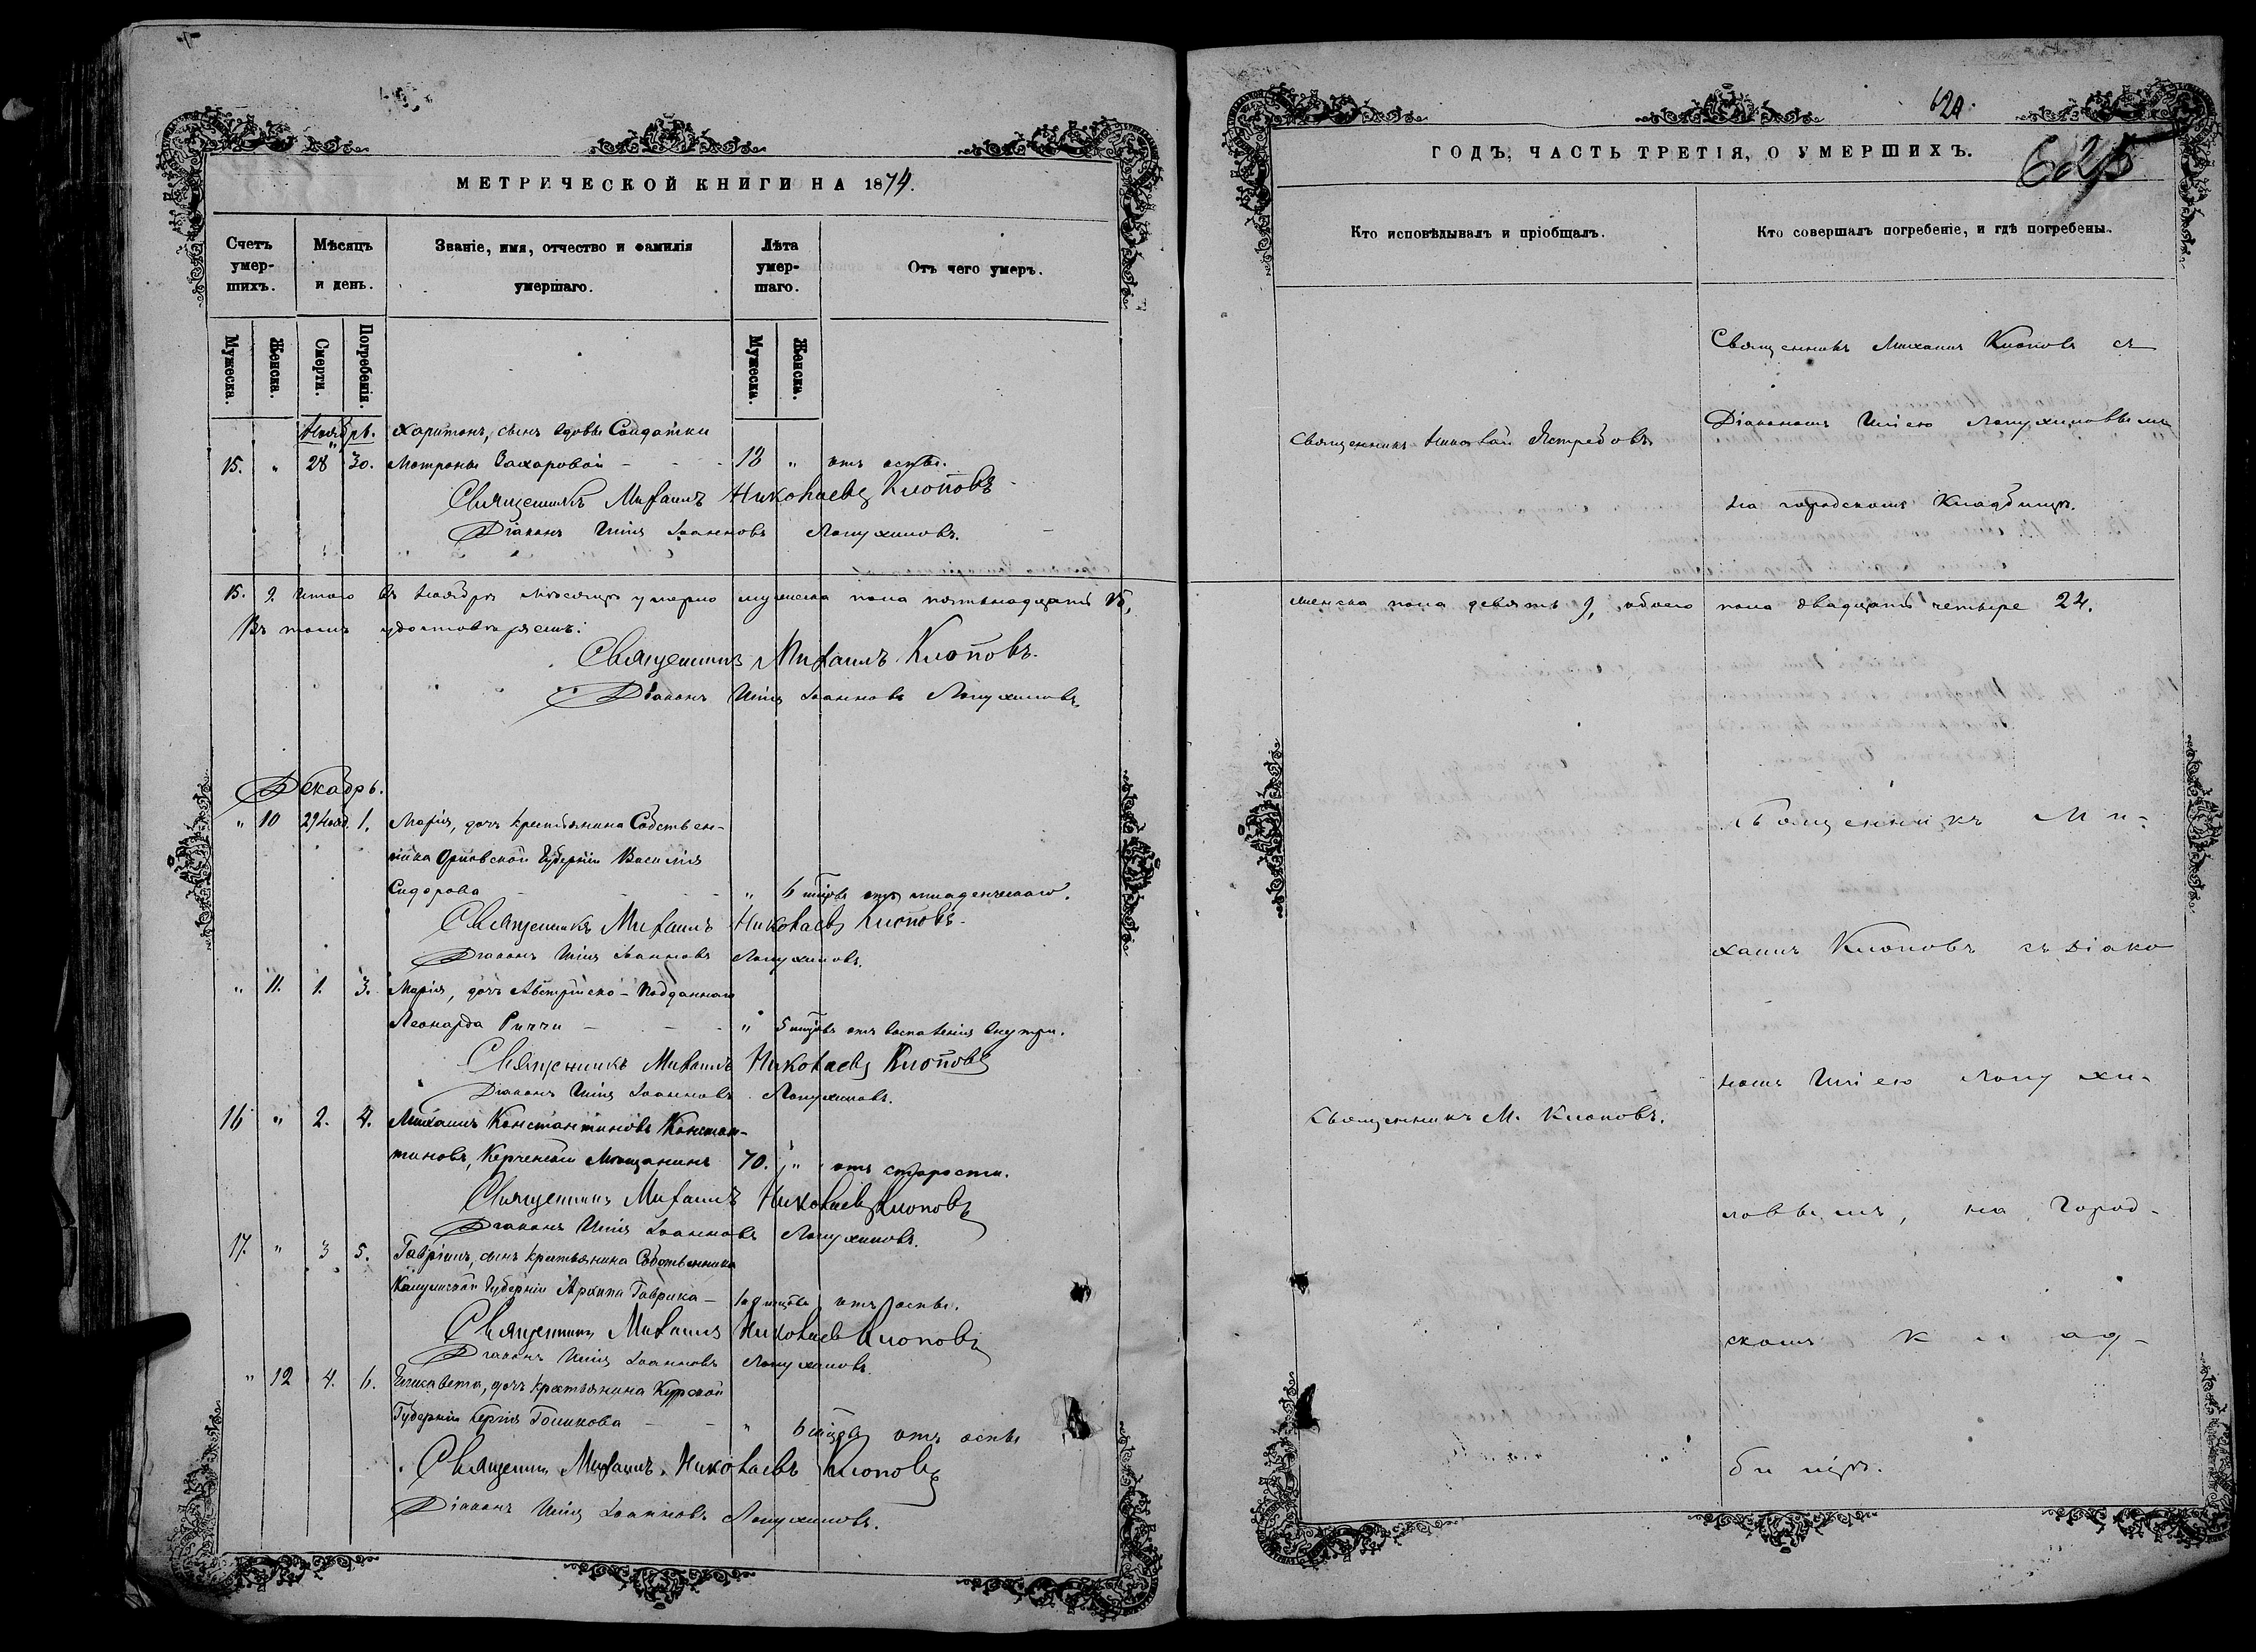 МЕТРИЧЕСКОЙ КНИГИ НА 1874.
Счетъ умер-шихъ.
Мѣсяцъ и день.
Званіе, имя, отчество и фамилія умершаго.
Лѣта умер-шаго.
Отъ чего умеръ.
Мужеска.
Женска.
Смерти.
Погребенія.
Мужеска.
Женска.
Ноябрь. Харитонъ, сынъ вдовы Солдатки
15. " 28 30. Матроны Захаровой - - - 13 " отъ оспы.
Священникъ Михаилъ Николаевъ Клоповъ
Діаконъ Илія Іоанновъ Лопухиновъ.
15. 9. Итого въ Ноябрѣ мѣсяцѣ умерло мужеска пола пятьнадцать 15,
Въ томъ удостовѣряемъ:
Священникъ Михаилъ Клоповъ.
Діаконъ Илія Іоанновъ Лопухиновъ.
Декабрь.
" 10 29 Нояб. 1. Марія, дочь крестьянина Собствен-
ника Орловской Губерніи Василія
Сидорова - - - " 6 мцовъ отъ младенческаго.
Священникъ Михаилъ Николаевъ Клоповъ.
Діаконъ Илія Іоанновъ Лопухиновъ.
" 11. 1. 3. Марія, дочь Австрійско-Подданнаго
Леонарда Риччи - - - " 5 мцовъ отъ воспаленія внутри.
Священникъ Михаилъ Николаевъ Клоповъ
Діаконъ Илія Іоанновъ Лопухиновъ.
16 " 2. 4. Михаилъ Константиновъ Констан-
тиновъ, Керченскій Мѣщанинъ 70. " отъ старости.
Священникъ Михаилъ Николаевъ Клоповъ
Діаконъ Илія Іоанновъ Лопухиновъ.
17. " 3 5. Гавріилъ, сынъ крестьянина Собственника
Губерніи Архипа Гаврика - отъ оспы.
Священникъ Михаилъ Николаевъ Клоповъ
Діаконъ Илія Іоанновъ Лопухиновъ.
" 12 4. 6. Елисавета, дочь крестьянина Курской
Губерніи Сергія Голикова - - " 6 мцовъ отъ оспы
Священникъ Михаилъ Николаевъ Клоповъ
Діаконъ Илія Іоанновъ Лопухиновъ.
620.
ГОДЪ, ЧАСТЬ ТРЕТІЯ, О УМЕРШИХЪ.
625
Кто исповѣдывалъ и пріобщалъ.
Кто совершалъ погребеніе, и гдѣ погребены.
Священникъ Михаилъ Клоповъ съ
Діакономъ Иліею Лопухиновымъ
Священникъ Николай Ястребовъ
на городскомъ Кладбищѣ.
женска пола девять 9, обоего пола двадцать четыре 24.
Священникъ Ми-
хаилъ Клоповъ съ Діако
номъ Иліею Лопухи-
Священникъ М. Клоповъ.
новымъ, на Город-
скомъ Клад-
бищѣ.